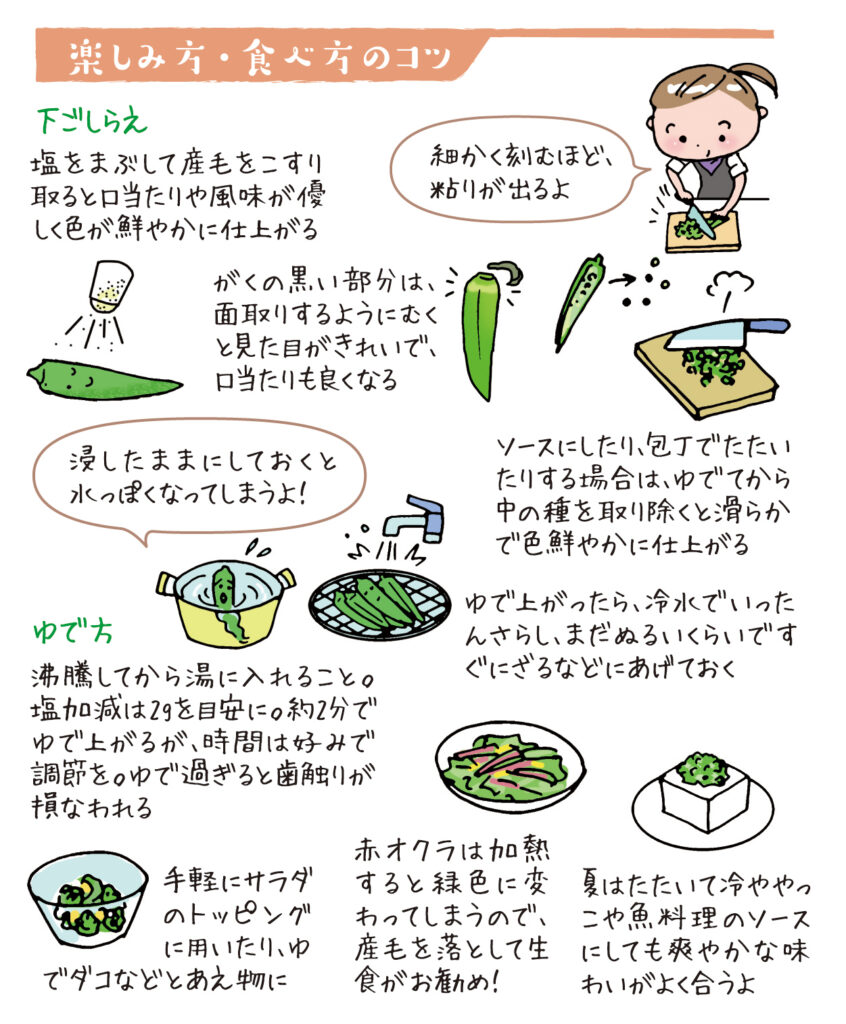 楽しみ方・食べ方のコツ
下ごしらえ
塩をまぶして産毛をこすり
取ると口当たりや風味が優
しく色が鮮やかに仕上がる
細かく刻むほど、
粘りが出るよ
がくの黒い部分は、
面取りするようにむく
と見た目がきれいで、
口当たりも良くなる
ソースにしたり、包丁でたたい
たりする場合は、ゆでてから
中の種を取り除くと滑らか
で色鮮やかに仕上がる
浸したままにしておくと
水っぽくなってしまうよ!
ゆで上がったら、冷水でいった
んさらし、まだぬるいくらいです
ぐにざるなどにあげておく
ゆで方
沸騰してから湯に入れること。
塩加減は2gを目安に。約2分で
ゆで上がるが、時間は好みで
調節を。ゆで過ぎると歯触りが
損なわれる
手軽にサラダ
のトッピング
に用いたり、ゆ
でダコなどとあえ物に
赤オクラは加熱
すると緑色に変
わってしまうので、
産毛を落として生
食がお勧め!
夏はたたいて冷ややっ
こや魚料理のソース
にしても爽やかな味
わいがよく合うよ